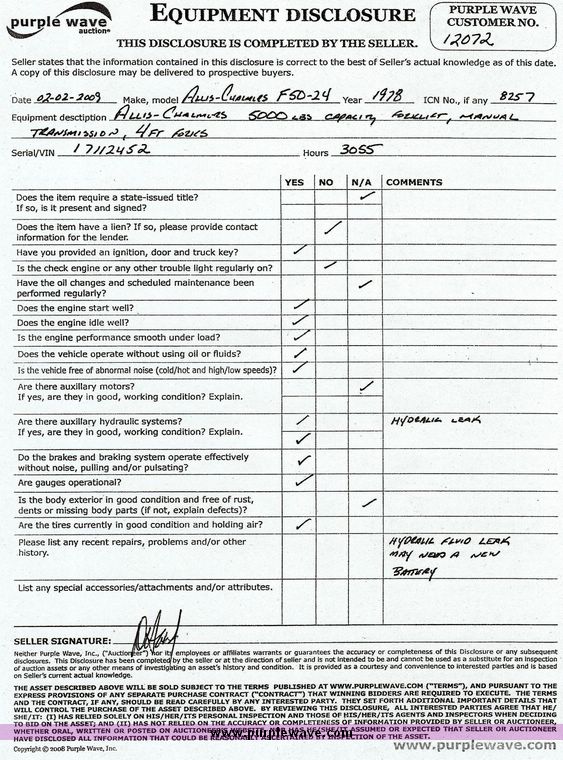 purple wave
auction®
EQUIPMENT DISCLOSURE
THIS DISCLOSURE IS COMPLETED BY THE SELLER.
PURPLE WAVE
CUSTOMER NO.
12072
Seller states that the information contained in this disclosure is correct to the best of Seller's actual knowledge as of this date.
A copy of this disclosure may be delivered to prospective buyers.
Date 02-02-2009 Make, model ALLIS-CHALMERS FSD-24 Year 1978 ICN No., if any 8257
Equipment desctiption ALLIS-CHALMERS 5000 LBS CAPACITY FORKLIFT, MANUAL
TRANSMISSION, 4FT FORKS
Serial/VIN 17112452 Hours 3055
YES NO N/A COMMENTS
Does the item require a state-issued title?
If so, is it present and signed?
Does the item have a lien? If so, please provide contact
information for the lender.
Have you provided an ignition, door and truck key?
Is the check engine or any other trouble light regularly on?
Have the oil changes and scheduled maintenance been
performed regularly?
Does the engine start well?
Does the engine idle well?
Is the engine performance smooth under load?
Does the vehicle operate without using oil or fluids?
Is the vehicle free of abnormal noise (cold/hot and high/low speeds)?
Are there auxillary motors?
If yes, are they in good, working condition? Explain.
Are there auxillary hydraulic systems? HYDRALIC LEAK
If yes, are they in good, working condition? Explain.
Do the brakes and braking system operate effectively
without noise, pulling and/or pulsating?
Are gauges operational?
Is the body exterior in good condition and free of rust,
dents or missing body parts (if not, explain defects)?
Are the tires currently in good condition and holding air?
Please list any recent repairs, problems and/or other HYDRALIC FLUID LEAK
history. MAY NEED A NEW
BATTERY
List any special accessories/attachments and/or attributes.
SELLER SIGNATURE:
Neither Purple Wave, Inc., ("Auctioneer") nor its employees or affiliates warrants or guarantees the accuracy or completeness of this Disclosure or any subsequent
disclosures. This Disclosure has been completed by the seller or at the direction of seller and is not intended to be and cannot be used as a substitute for an inspection
of auction assets or any other means of investigating an asset's history and condition. It is provided as a courtesy and convenience to interested parties and is based
on Seller's current actual knowledge.
THE ASSET DESCRIBED ABOVE WILL BE SOLD SUBJECT TO THE TERMS PUBLISHED AT WWW.PURPLEWAVE.COM ("TERMS"), AND PURSUANT TO THE
EXPRESS PROVISIONS OF ANY SEPARATE PURCHASE CONTRACT ("CONTRACT") THAT WINNING BIDDERS ARE REQUIRED TO EXECUTE. THE TERMS
AND THE CONTRACT, IF ANY, SHOULD BE READ CAREFULLY BY ANY INTERESTED PARTY. THEY SET FORTH ADDITIONAL IMPORTANT DETAILS THAT
WILL CONTROL THE PURCHASE OF THE ASSET DESCRIBED ABOVE. BY REVIEWING THIS DISCLOSURE, ALL INTERESTED PARTIES AGREE THAT HE/
SHE/IT: (I) HAS RELIED SOLELY ON HIS/HER/ITS PERSONAL INSPECTION AND THOSE OF HIS/HER/ITS AGENTS AND INSPECTORS WHEN DECIDING
TO BID ON THE ASSET; AND (II) HAS NOT RELIED ON THE ACCURACY OR COMPLETENESS OF INFORMATION PROVIDED BY SELLER OR AUCTIONEER,
WHETHER ORAL, WRITTEN OR POSTED ON AUCTIONEER'S WEBSITE. NOR HAS HE/SHE/IT ASSUMED OR EXPECTED THAT SELLER OR AUCTIONEER
HAVE DISCLOSED ALL INFORMATION THAT COULD BE REASONABLY ASCERTAINED BY INSPECTION OF THE ASSET.
www.purplewave.com
Copyright © 2008 Purple Wave, Inc.
www.purplewave.com